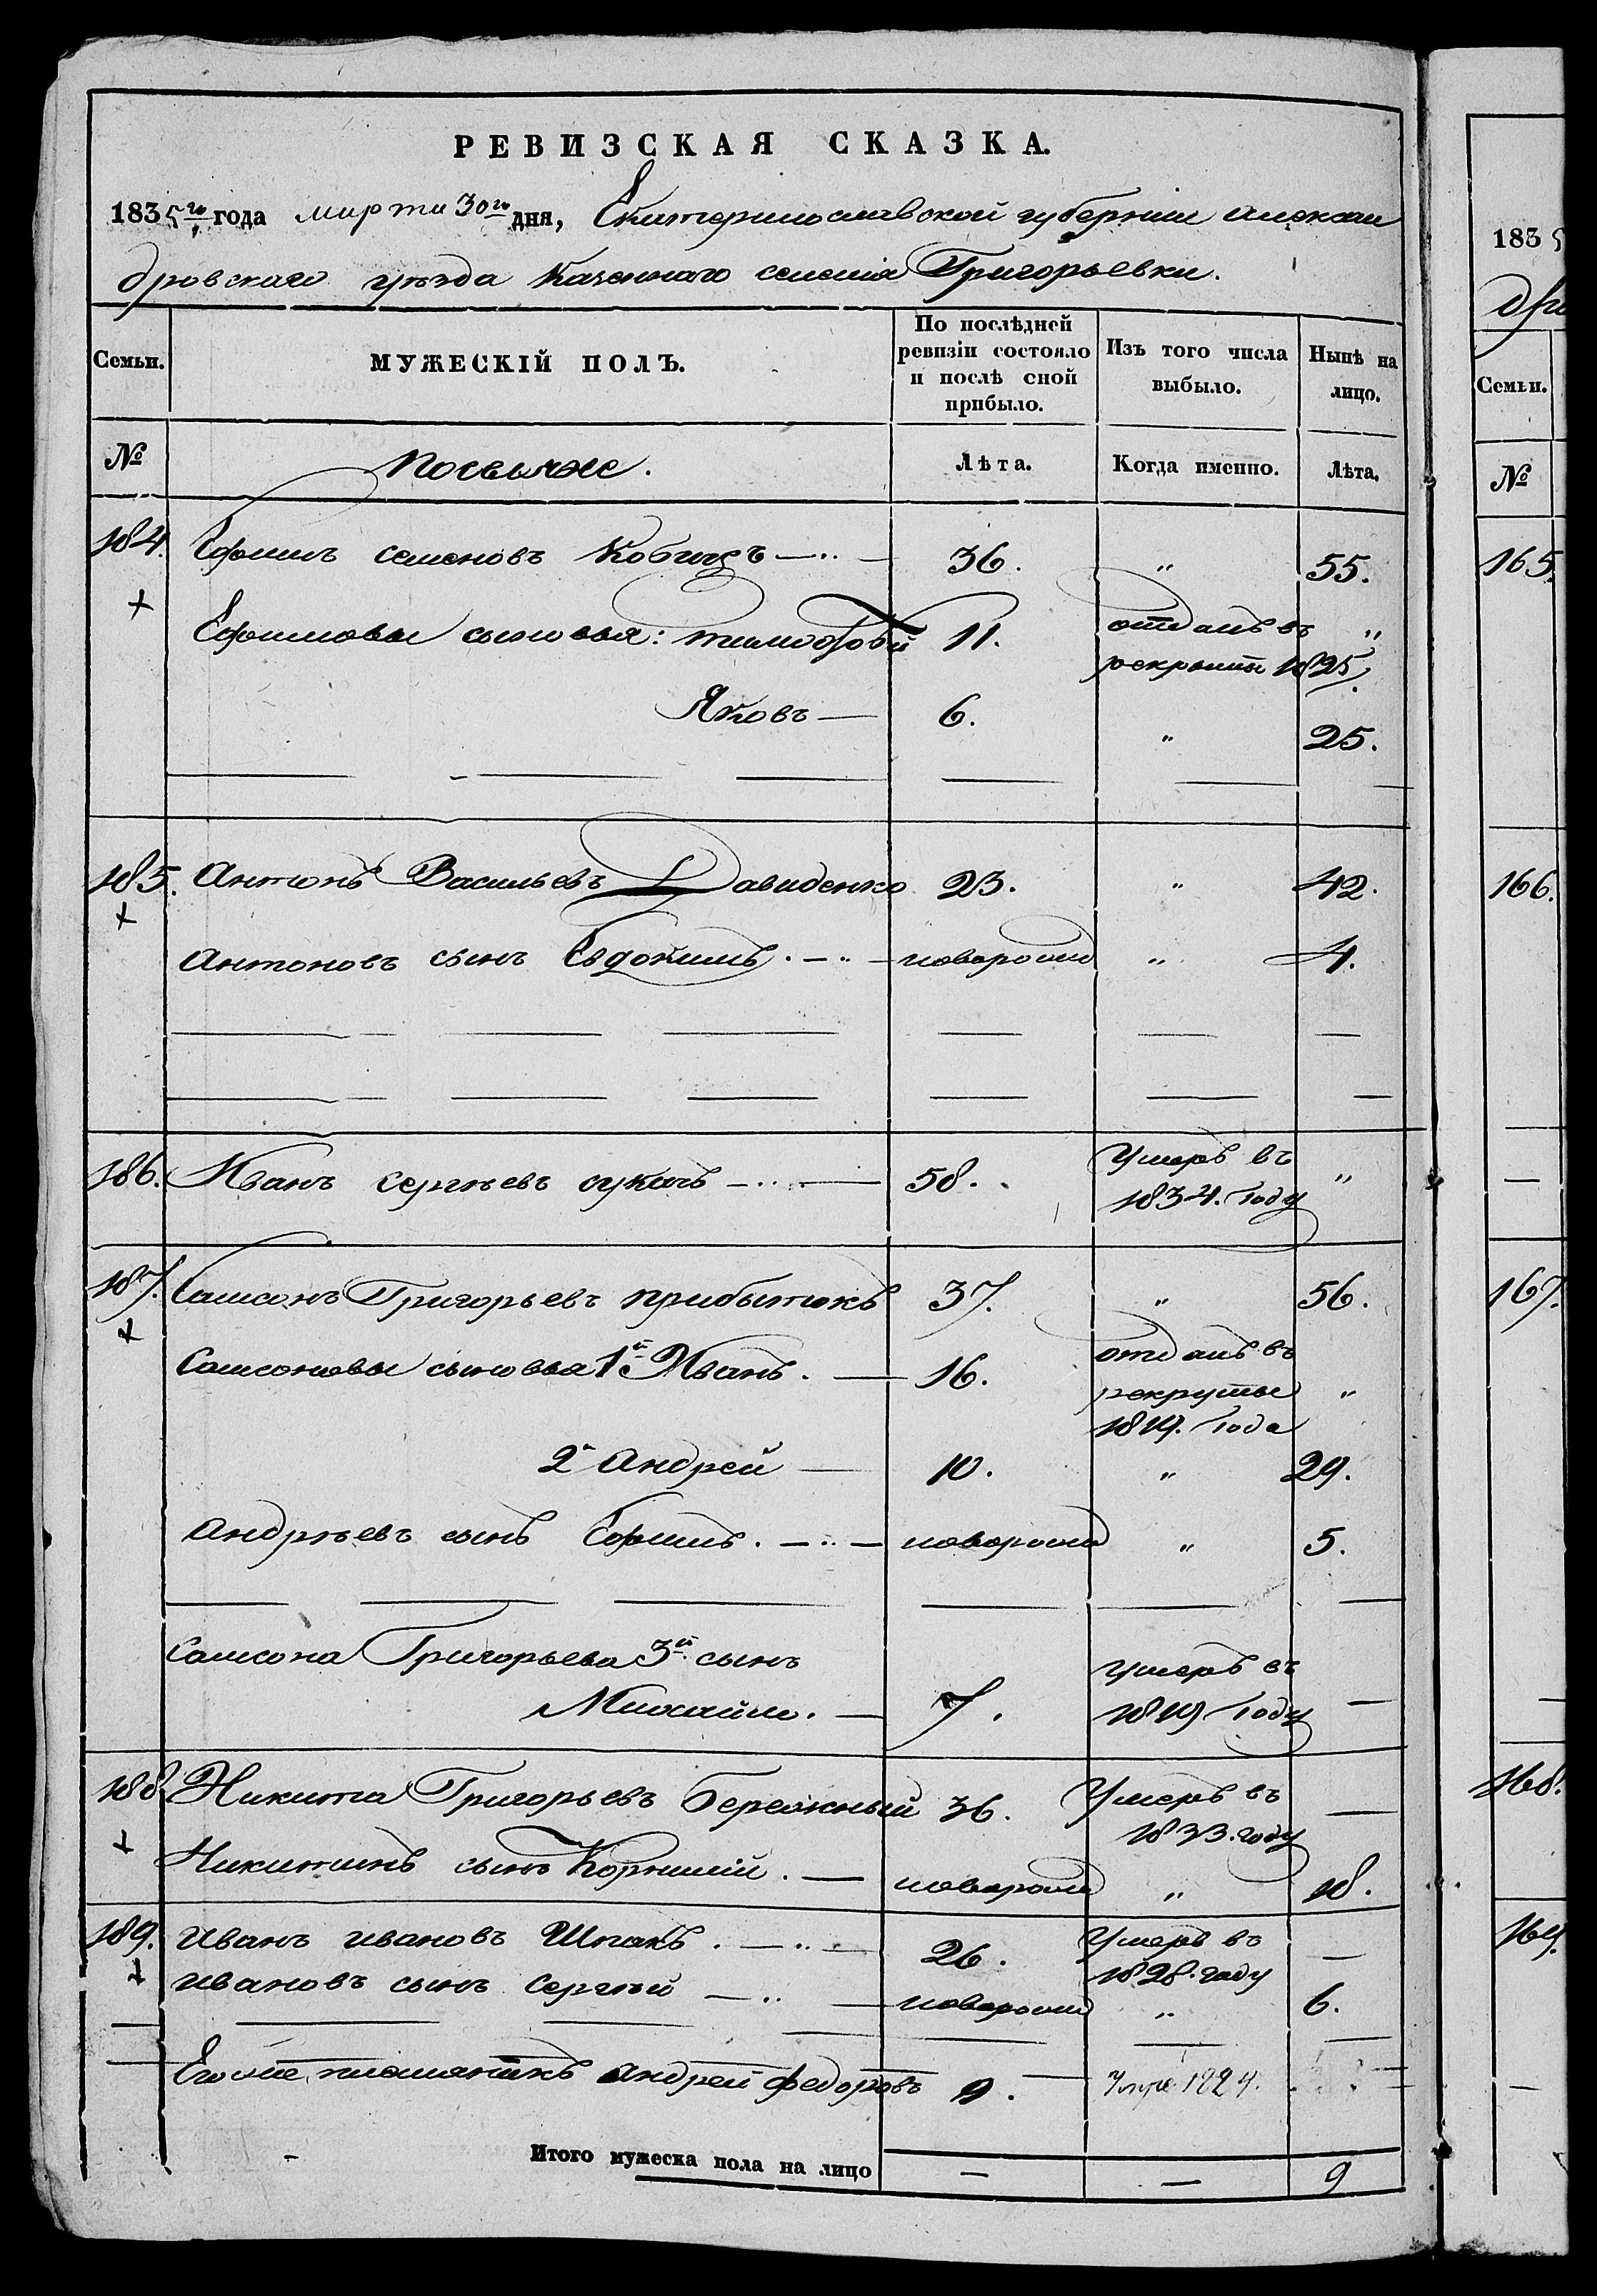 РЕВИЗСКАЯ СКАЗКА.
1835го года марта 30го дня, Екатеринославской губернии Алексан
дровского уезда Казенного селения Григорьевки.
Семьи.
МУЖЕСКІЙ ПОЛЪ.
По послѣдней ревизіи состояло и послѣ оной прибыло.
Изъ того числа выбыло.
Нынѣ на лицо.
№
Лѣта.
Когда именно.
Лѣта.
184. Ефимъ Семеновъ 36. " 55.
+
Ефимовы сыновья: Тимофей 11. отданъ въ "
рекруты 1825
Яковъ — 6. " 25.
185. Антонъ Васильевъ Давиденко 23. " 42.
+
Антоновъ сынъ Евдокимъ. новорожд " 4.
186. Иванъ Сергѣевъ Сукачъ 58. Умеръ въ "
1834. году
187. Самсонъ Григорьевъ Прибытокъ 37. " 56.
+
Самсоновы сыновья 1й Иванъ. — 16. отданъ въ
рекруты "
1819. года
2й Андрей — 10. " 29.
Андрѣевъ сынъ Ефимъ. новорожд " 5.
Самсона Григорьева 3й сынъ умеръ въ
Михайло. — 7. 1819 году —
188. Никита Григорьевъ Бережный 36. Умеръ въ —
+ 1833. году
Никитинъ сынъ Корнилій. — новорожд " 18.
189. Иванъ Ивановъ Шпакъ. 26. Умеръ въ —
+ 1828. году
Ивановъ сынъ Сергѣй новорожд " 6.
племяникъ Андрей Федоровъ 9. 1824.
Итого мужеска пола на лицо — — 9
1835
дро
Семьи.
№
165.
166.
167.
168.
169.